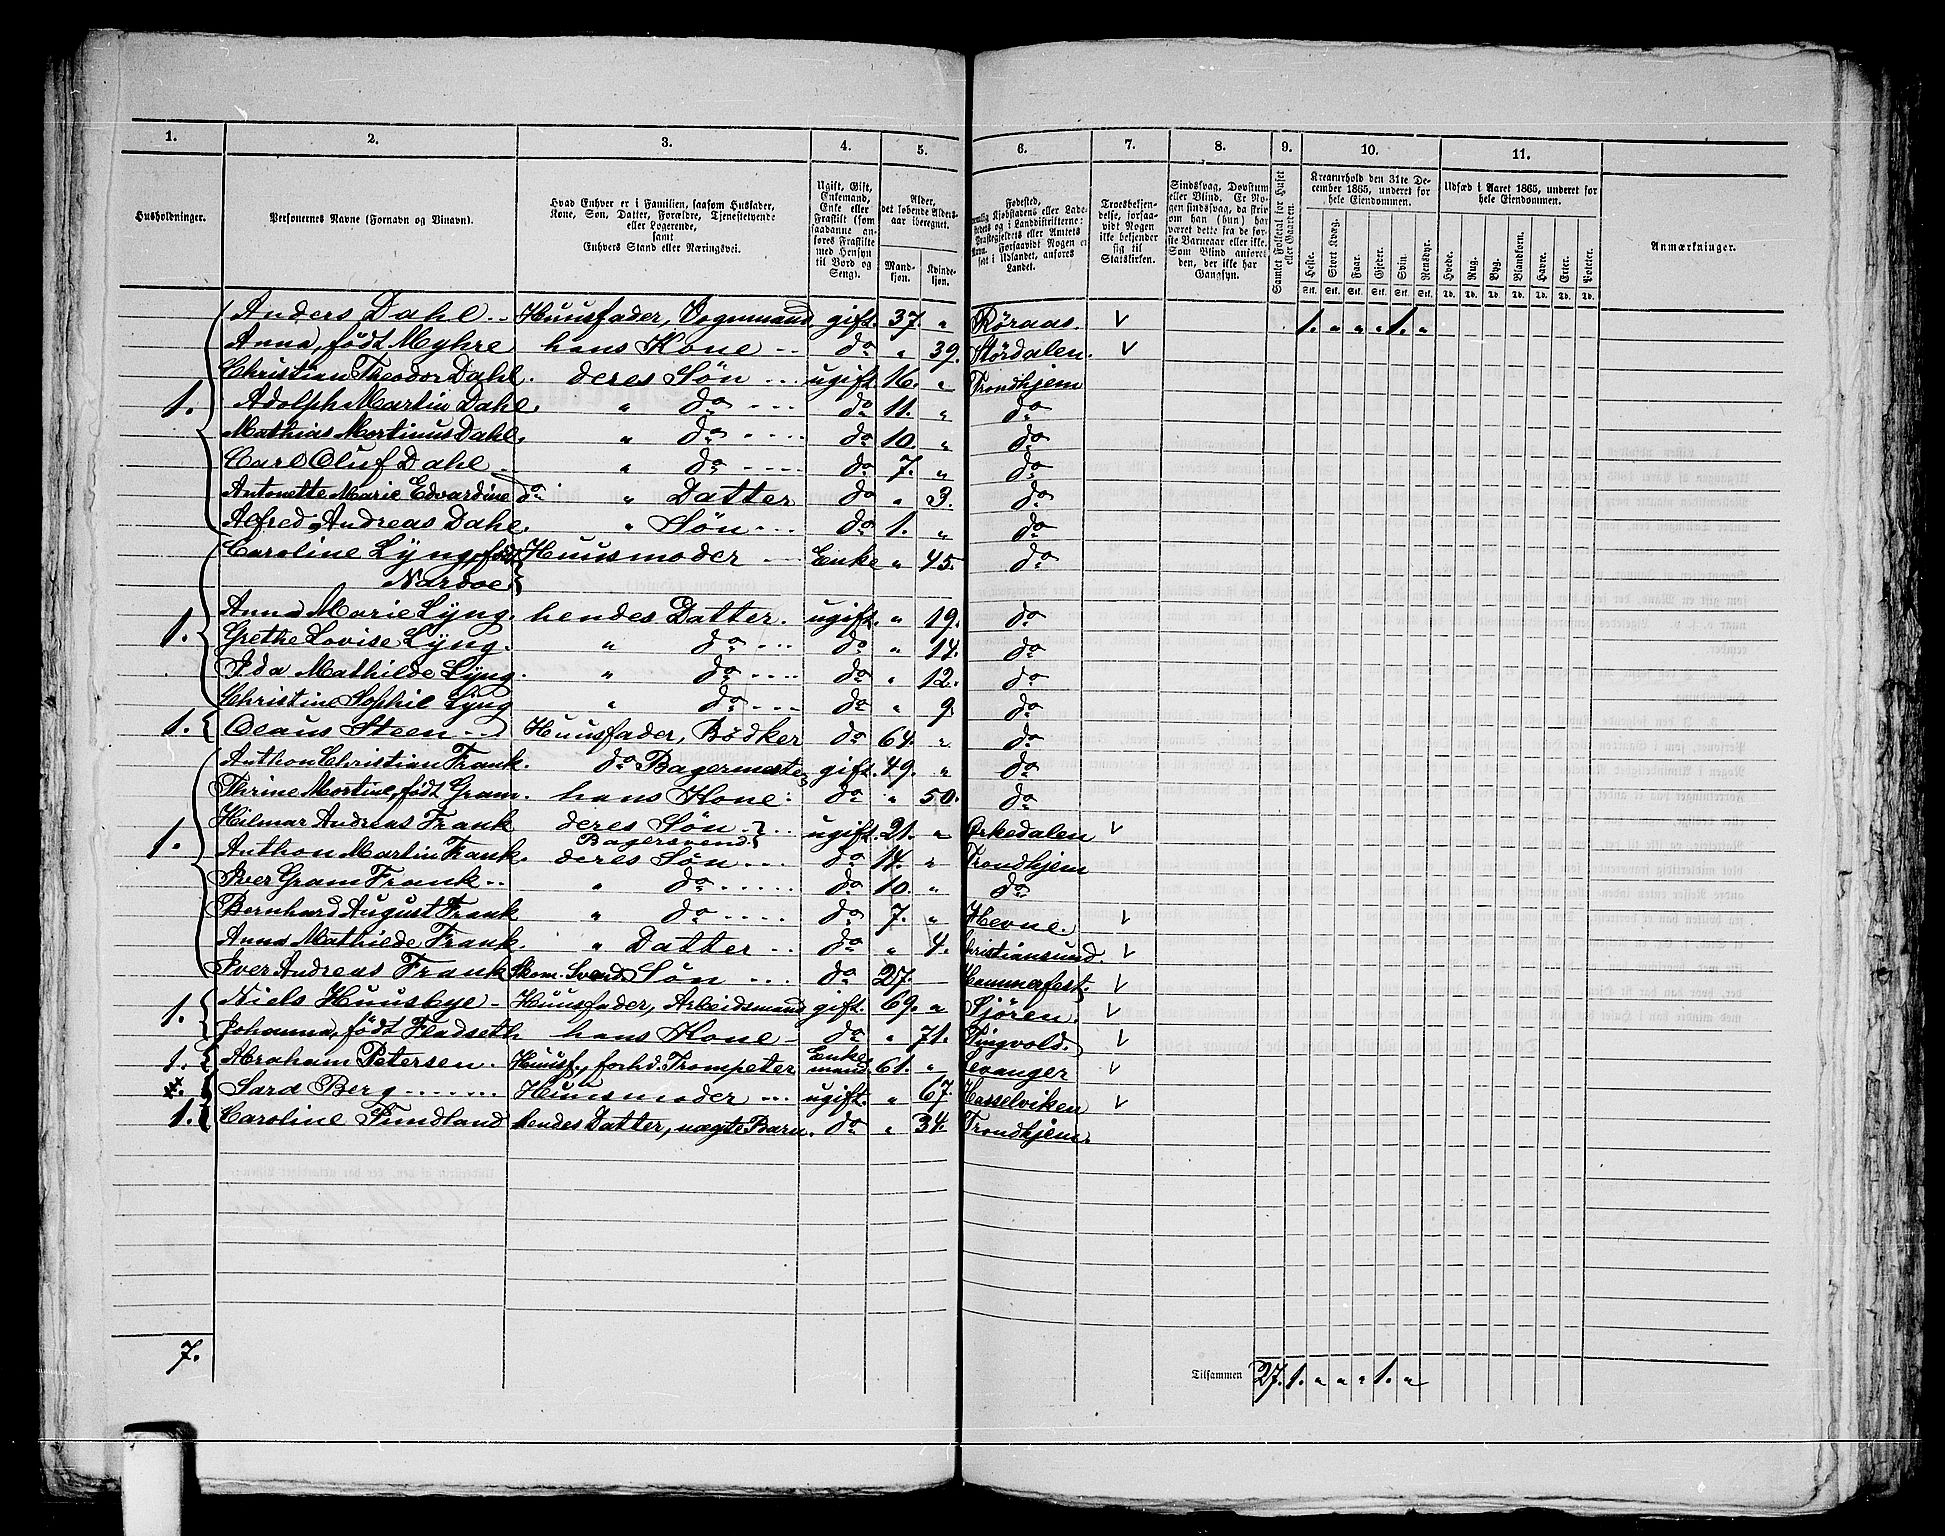 1. 2. 3. 4. 5. 6. 7. 8. 9. 10. 11.
Husholdninger.
Personernes Navne (Fornavn og Tilnavn).
Hvad Enhver er i Familien, saasom Husfader,
Kone, Søn, Datter, Forældre, Tjenestetyende
eller Logerende,
samt
Enhvers Stand eller Næringsvei.
Ugift, Gift,
Enkemand,
Enke eller
Fraskilt (som
saadanne an-
føres Fraskilte
med Hensyn
til Bord og
Seng).
Alder,
det løbende Alders-
aar iberegnet.
Mand-
kjøn.
Kvinde-
kjøn.
Fødested,
Forsaavidt Nogen er
født i Udlandet, anføres
Landet.
Troesbekjen-
delse, forsaa-
vidt Nogen
ikke bekjender
sig til
Statskirken.
Sindssvag, Døvstum
eller Blind. Er No-
gen sindssvag, da skri-
ves om han (hun) har
været dette fra de før-
ste Barneaar eller ikke.
Som Blind anføres
den, der ikke har
Gangsyn.
Samlet Folketal for Huset
eller Gaarden.
Kreaturhold den 31te De-
cember 1865, underet for
hele Eiendommen.
Heste. Stort Kvæg. Faar. Gjeder. Svin. Rensdyr.
Stk. Stk. Stk. Stk. Stk. Stk.
Udsæd i Aaret 1865, underet for
hele Eiendommen.
Hvede. Rug. Byg. Blandkorn. Havre. Erter. Poteter.
Td. Td. Td. Td. Td. Td. Td.
Anmærkninger.
Anders Dahl -- Huusfader, Vognmand gift. 37. " Röraas. V 1. " " " 1. "
Anna, født Myhre hans Kone -- do " 39. Stördalen. V
Christian Theodor Dahl. deres Søn --- ugift 16. " Trondhjem
1. Adolph Martin Dahl. " do ---- do 11. " do
Mathias Mortinus Dahl. " do ---- do 10. " do
Carl Oluf Dahl -- " do ---- do 7. " do
Antonette Marie Edvardine do " Datter do " 3. do
Alfred Andreas Dahl. " Søn --- do 1. " do
Caroline Lyng, født Huusmoder --- Enke " 45. do
Nardoe.
Anna Marie Lyng. hendes Datter. ugift. " 19. do
1. Grethe Lovise Lyng. " do --- do " 14. do
Ida Mathilde Lyng. " do ---- do " 12. do
Christine Sophie Lyng " do --- do " 9 do
1. Claus Steen --- Huusfader, Bødker do 64. " do
Anthon Christian Frank. do Bagermester gift. 49. " do
Thrine Mortine, født Gram. hans Kone. do " 50. do
Hilmar Andreas Frank deres Søn --- ugift. 21. " Orkedalen V
Bagersvend
1. Anthon Martin Frank. deres Søn --- do 14. " Trondhjem
Iver Gram Frank -- " do ----- do 10. " do
Bernhard August Frank " do ---- do 7. " Hevne. V
Anna Mathilde Frank. " Datter -- do " 4. Christiansund. V
Iver Andreas Frank Skom. Svend. Søn --- do 27. Hammerfest. V
1. Niels Huusbye - Huusfader, Arbeidsmand gift. 69. " Sjören. V
Johanna, født Fladseth hans Kone - do " 71. Tingvold. V
1. Abraham Petersen. Huusf., forhd. Trompeter Enke- 61. " Levanger V
mand
Sara Berg ------- Huusmoder --- ugift. " 67. Hasselviken V
1. Caroline Sundland hendes Datter, uægte Barn. do " 34. Trondhjem.
7. Tilsammen 27. 1. " " " 1. "